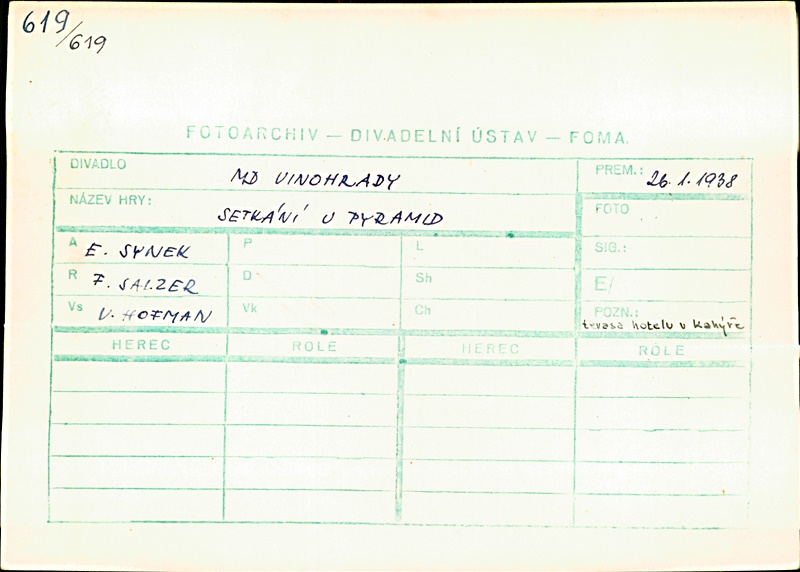 619/619
FOTOARCHIV — DIVADELNÍ ÚSTAV — FOMA.
DIVADLO MD VINOHRADY PREM.: 26. 1. 1938
NÁZEV HRY: SETKÁNÍ U PYRAMID FOTO
A E. SYNEK P L SIG.:
R F. SALZER D Sh E/
Vs V. HOFMAN Vk Ch POZN.: terasa hotelu v Kahýře
HEREC ROLE HEREC ROLE